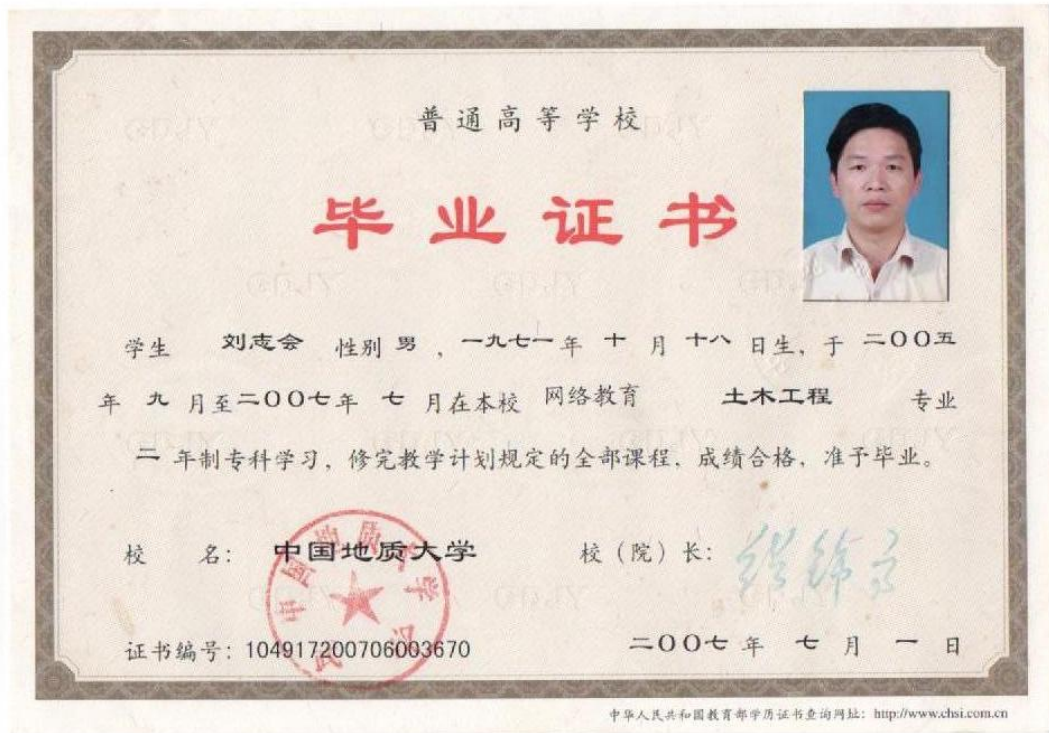 普通高等学校
毕业证书
学生 刘志会 性别 男 ，一九七一 年 十 月 十八 日生，于 二〇〇五
年 九 月至二〇〇七年 七 月在本校 网络教育 土木工程 专业
二 年制专科学习，修完教学计划规定的全部课程，成绩合格，准予毕业。
校 名： 中国地质大学 校（院）长：
证书编号：104917200706003670 二〇〇七 年 七 月 一 日
中华人民共和国教育部学历证书查询网址：http://www.chsi.com.cn